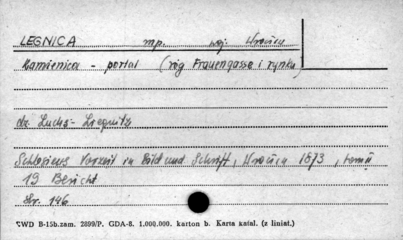 LEGNICA mp. woj. Wrocław
Kamienica - portal (róg Frauengasse i rynku)
Luchs - Liegnitz
Schlesiens Vorzeit in Bild und Schrift, 1873,
19 Bericht
Str. 146
CWD B-15b.zam. 2899/P. GDA-8. 1.000.000. karton b. Karta katal. (z liniat.)